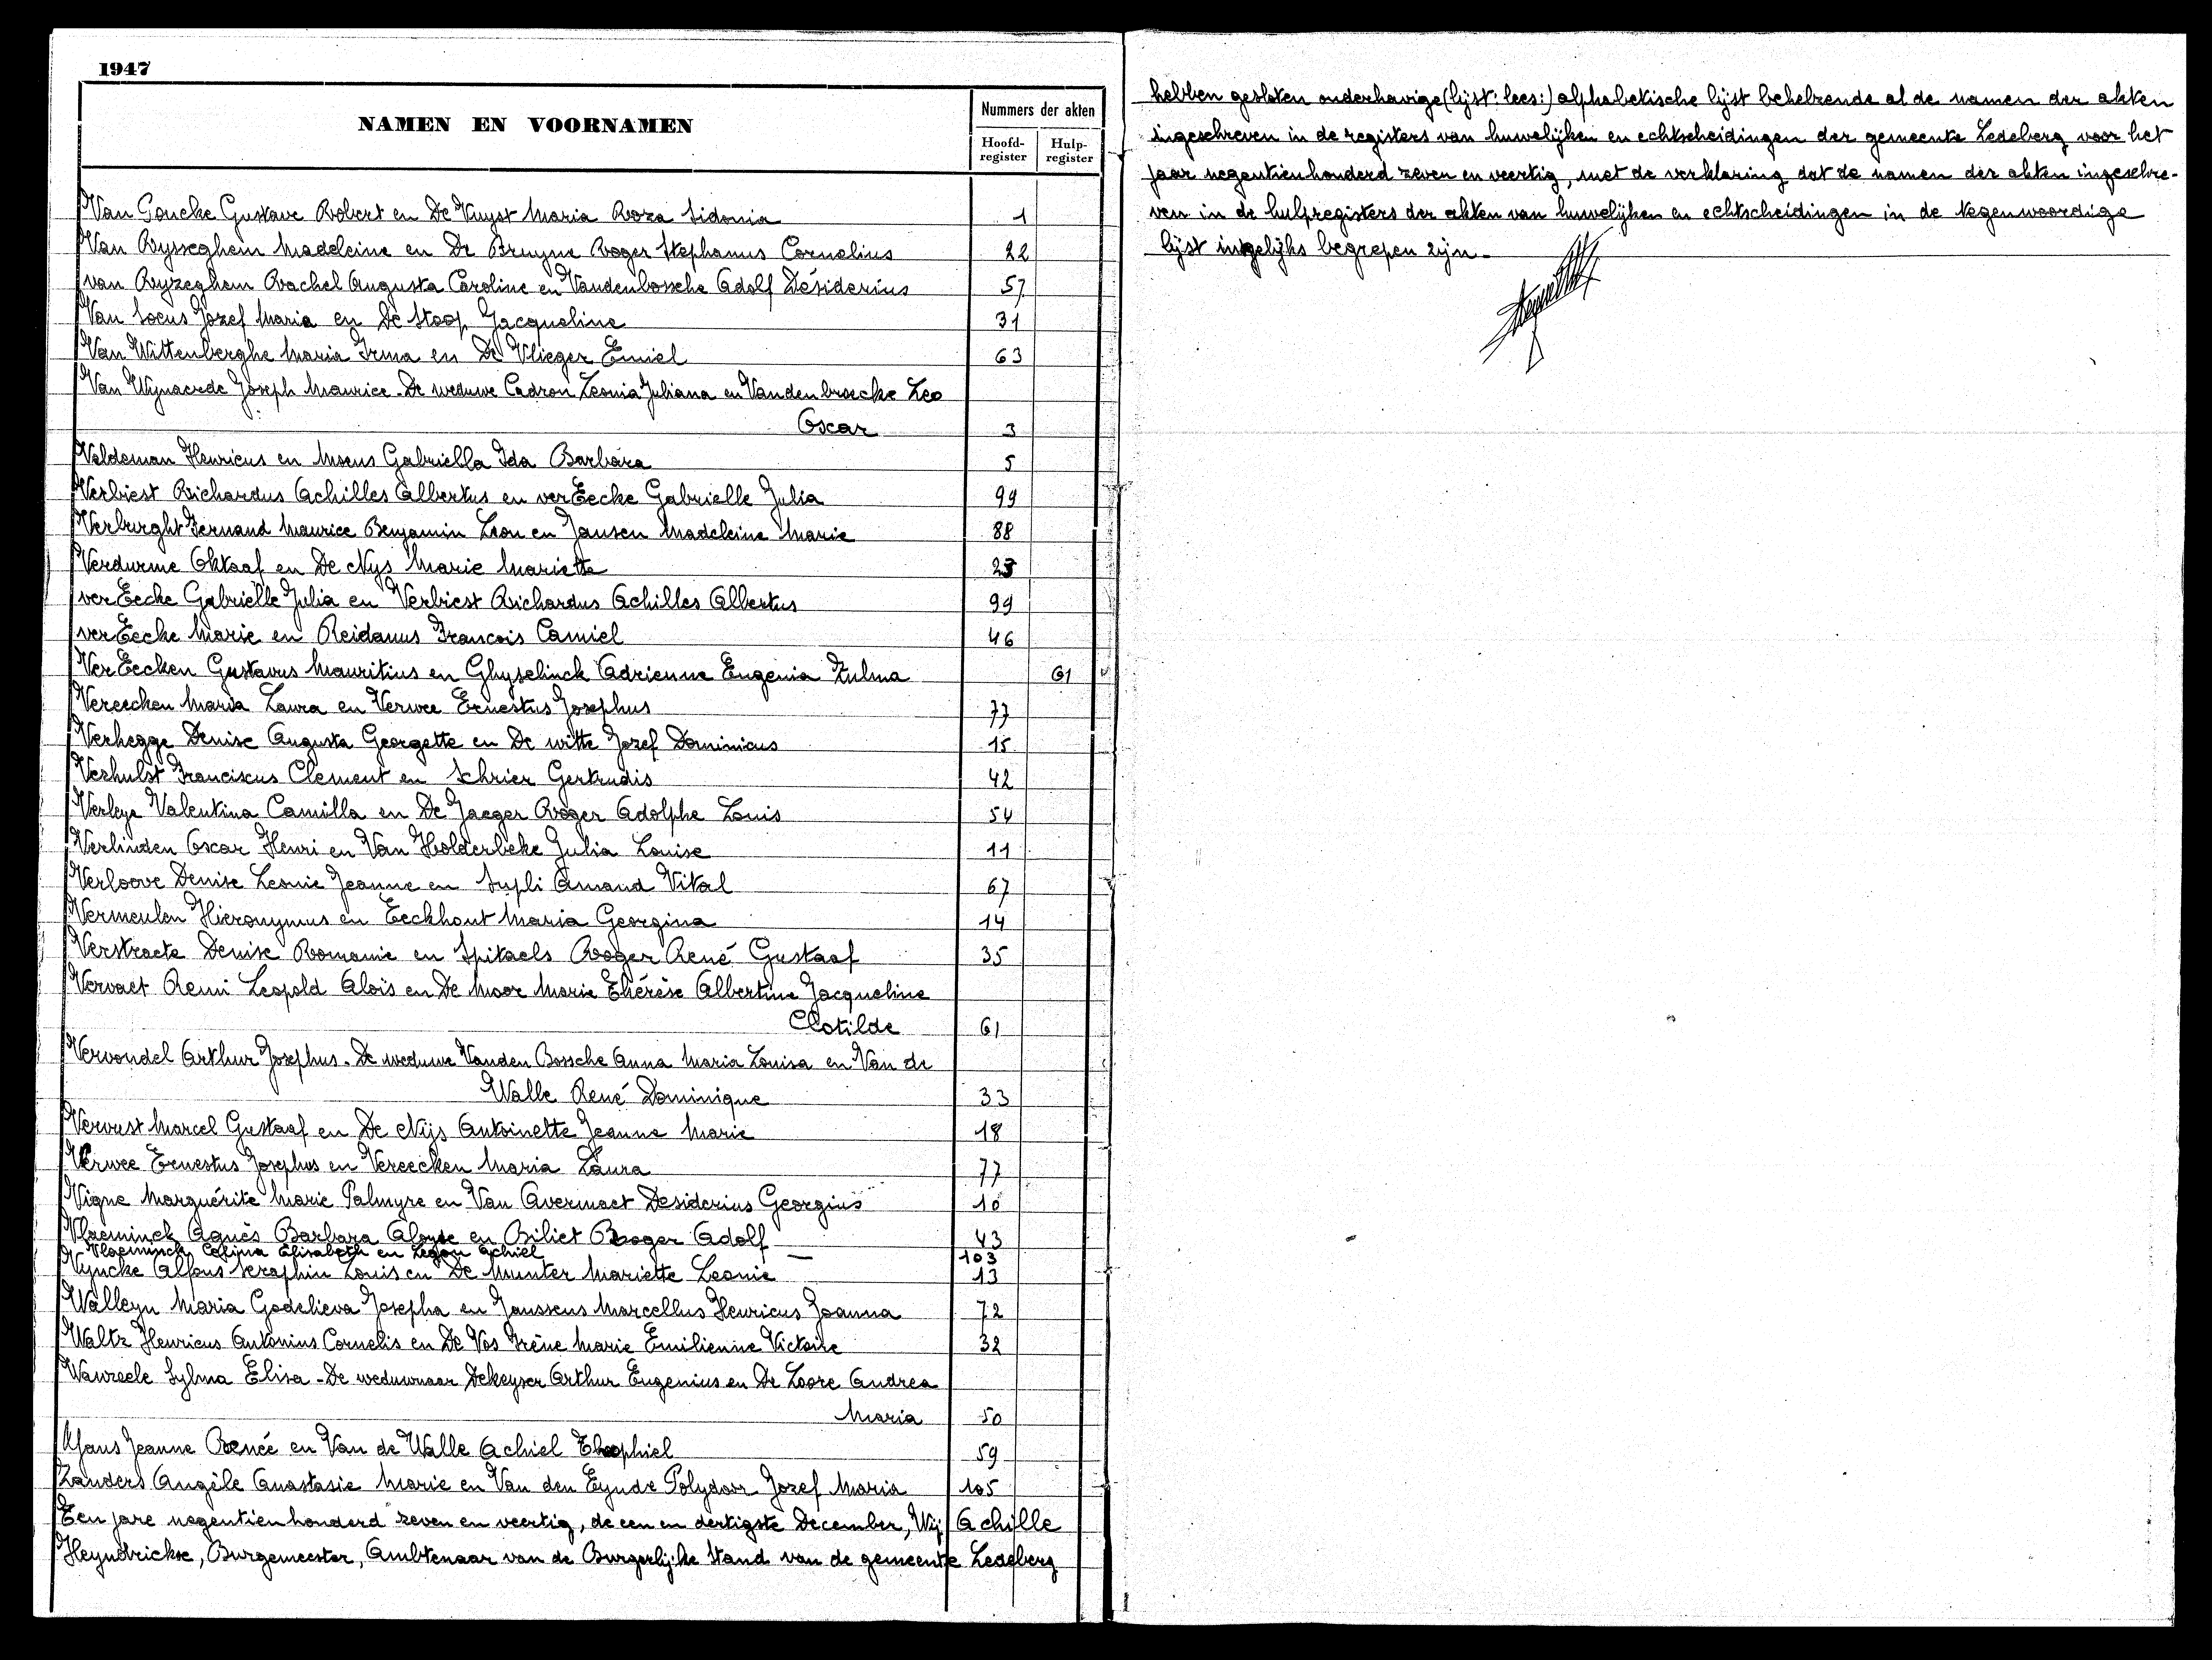 1947
NAMEN EN VOORNAMEN
Nummers der akten
Hoofd-register
Hulp-register
Van Goucke Gustave Robert en De Vuyst Maria Roza Sidonia 1
Van Rysseghem Madeleine en De Bruyne Roger Stephanus Cornelius 22
van Ryzeghem Rachel Augusta Caroline en Vandenbossche Adolf Désiderius 57
Van Socus Jozef Maria en De Stoop Jacqueline 31
Van Wittenberghe Maria Irma en De Vlieger Emiel 63
Van Wynacrede Joseph Maurice - De weduwe Cadron Leonia Juliana en Vandenbroecke Leo
Oscar 3
Veldeman Henricus en Msens Gabriella Ida Barbara 5
Verbiest Richardus Achilles Albertus en verEecke Gabrielle Julia 99
Verburght Fernand Maurice Benjamin Leon en Jansen Madeleine Marie 88
Verdurme Oktaaf en De Nys Marie Mariette 23
verEecke Gabriëlle Julia en Verbiest Richardus Achilles Albertus 99
verEecke Marie en Reidanus Francois Camiel 46
VerEecken Gustavus Mauritius en Ghyselinck Adrienne Eugenia Zulma 61
Vereecken Maria Laura en Verwee Ernestus Josephus 77
Verhegge Denise Augusta Georgette en De witte Jozef Dominicus 15
Verhulst Franciscus Clement en Schrier Gertrudis 42
Verleye Valentina Camilla en De Jaeger Roger Adolphe Louis 54
Verlinden Oscar Henri en Van Holderbeke Julia Louise 11
Verloove Denise Leonie Jeanne en Supli Amand Vital 67
Vermeulen Hieronymus en Eeckhout Maria Georgina 14
Verstraete Denise Romanie en Spitaels Roger René Gustaaf 35
Vervaet Remi Leopold Alois en De Moor Marie Thérèse Albertine Jacqueline
Clotilde 61
Vervondel Arthur Josephus - De weduwe Vanden Bossche Anna Maria Louisa en Van de
Walle René Dominique 33
Vervust Marcel Gustaaf en De Nijs Antoinette Jeanne Marie 18
Verwee Ernestus Josephus en Vereecken Maria Laura 77
Vigne Marguérite Marie Palmyre en Van Avermaet Desiderius Georgius 10
Vlaeminck Agnès Barbara Aloyse en Biliet Roger Adolf 43
Vlaeminck Celina Elisabeth en Legon Achiel 103
Vyncke Alfons Seraphin Louis en De Munter Mariette Leonie 13
Walleyn Maria Godelieva Josepha en Janssens Marcellus Henricus Joanna 72
Waltz Henricus Antonius Cornelis en De Vos Irène Marie Emilienne Victoire 32
Waureele Sylma Elisa - De weduwnaar Dekeyser Arthur Eugenius en De Loore Andrea
Maria 50
Jeanne Renée en Van de Walle Achiel Theophiel 59
Zanders Angèle Anastasie Marie en Van den Eynde Polydoor Jozef Maria 105
Ten jare negentienhonderd zeven en veertig, de een en dertigste December, Wij Achille
Heyndrickse, Burgemeester, Ambtenaar van de Burgerlijke Stand van de gemeente Ledeberg
hebben gesloten onderhavige (lijst: lees:) alphabetische lijst behelzende al de namen der akten
ingeschreven in de registers van huwelijken en echtscheidingen der gemeente Ledeberg voor het
jaar negentienhonderd zeven en veertig, met de verklaring dat de namen der akten ingeschre-
ven in de hulpregisters der akten van huwelijken en echtscheidingen in de tegenwoordige
lijst insgelijks begrepen zijn.